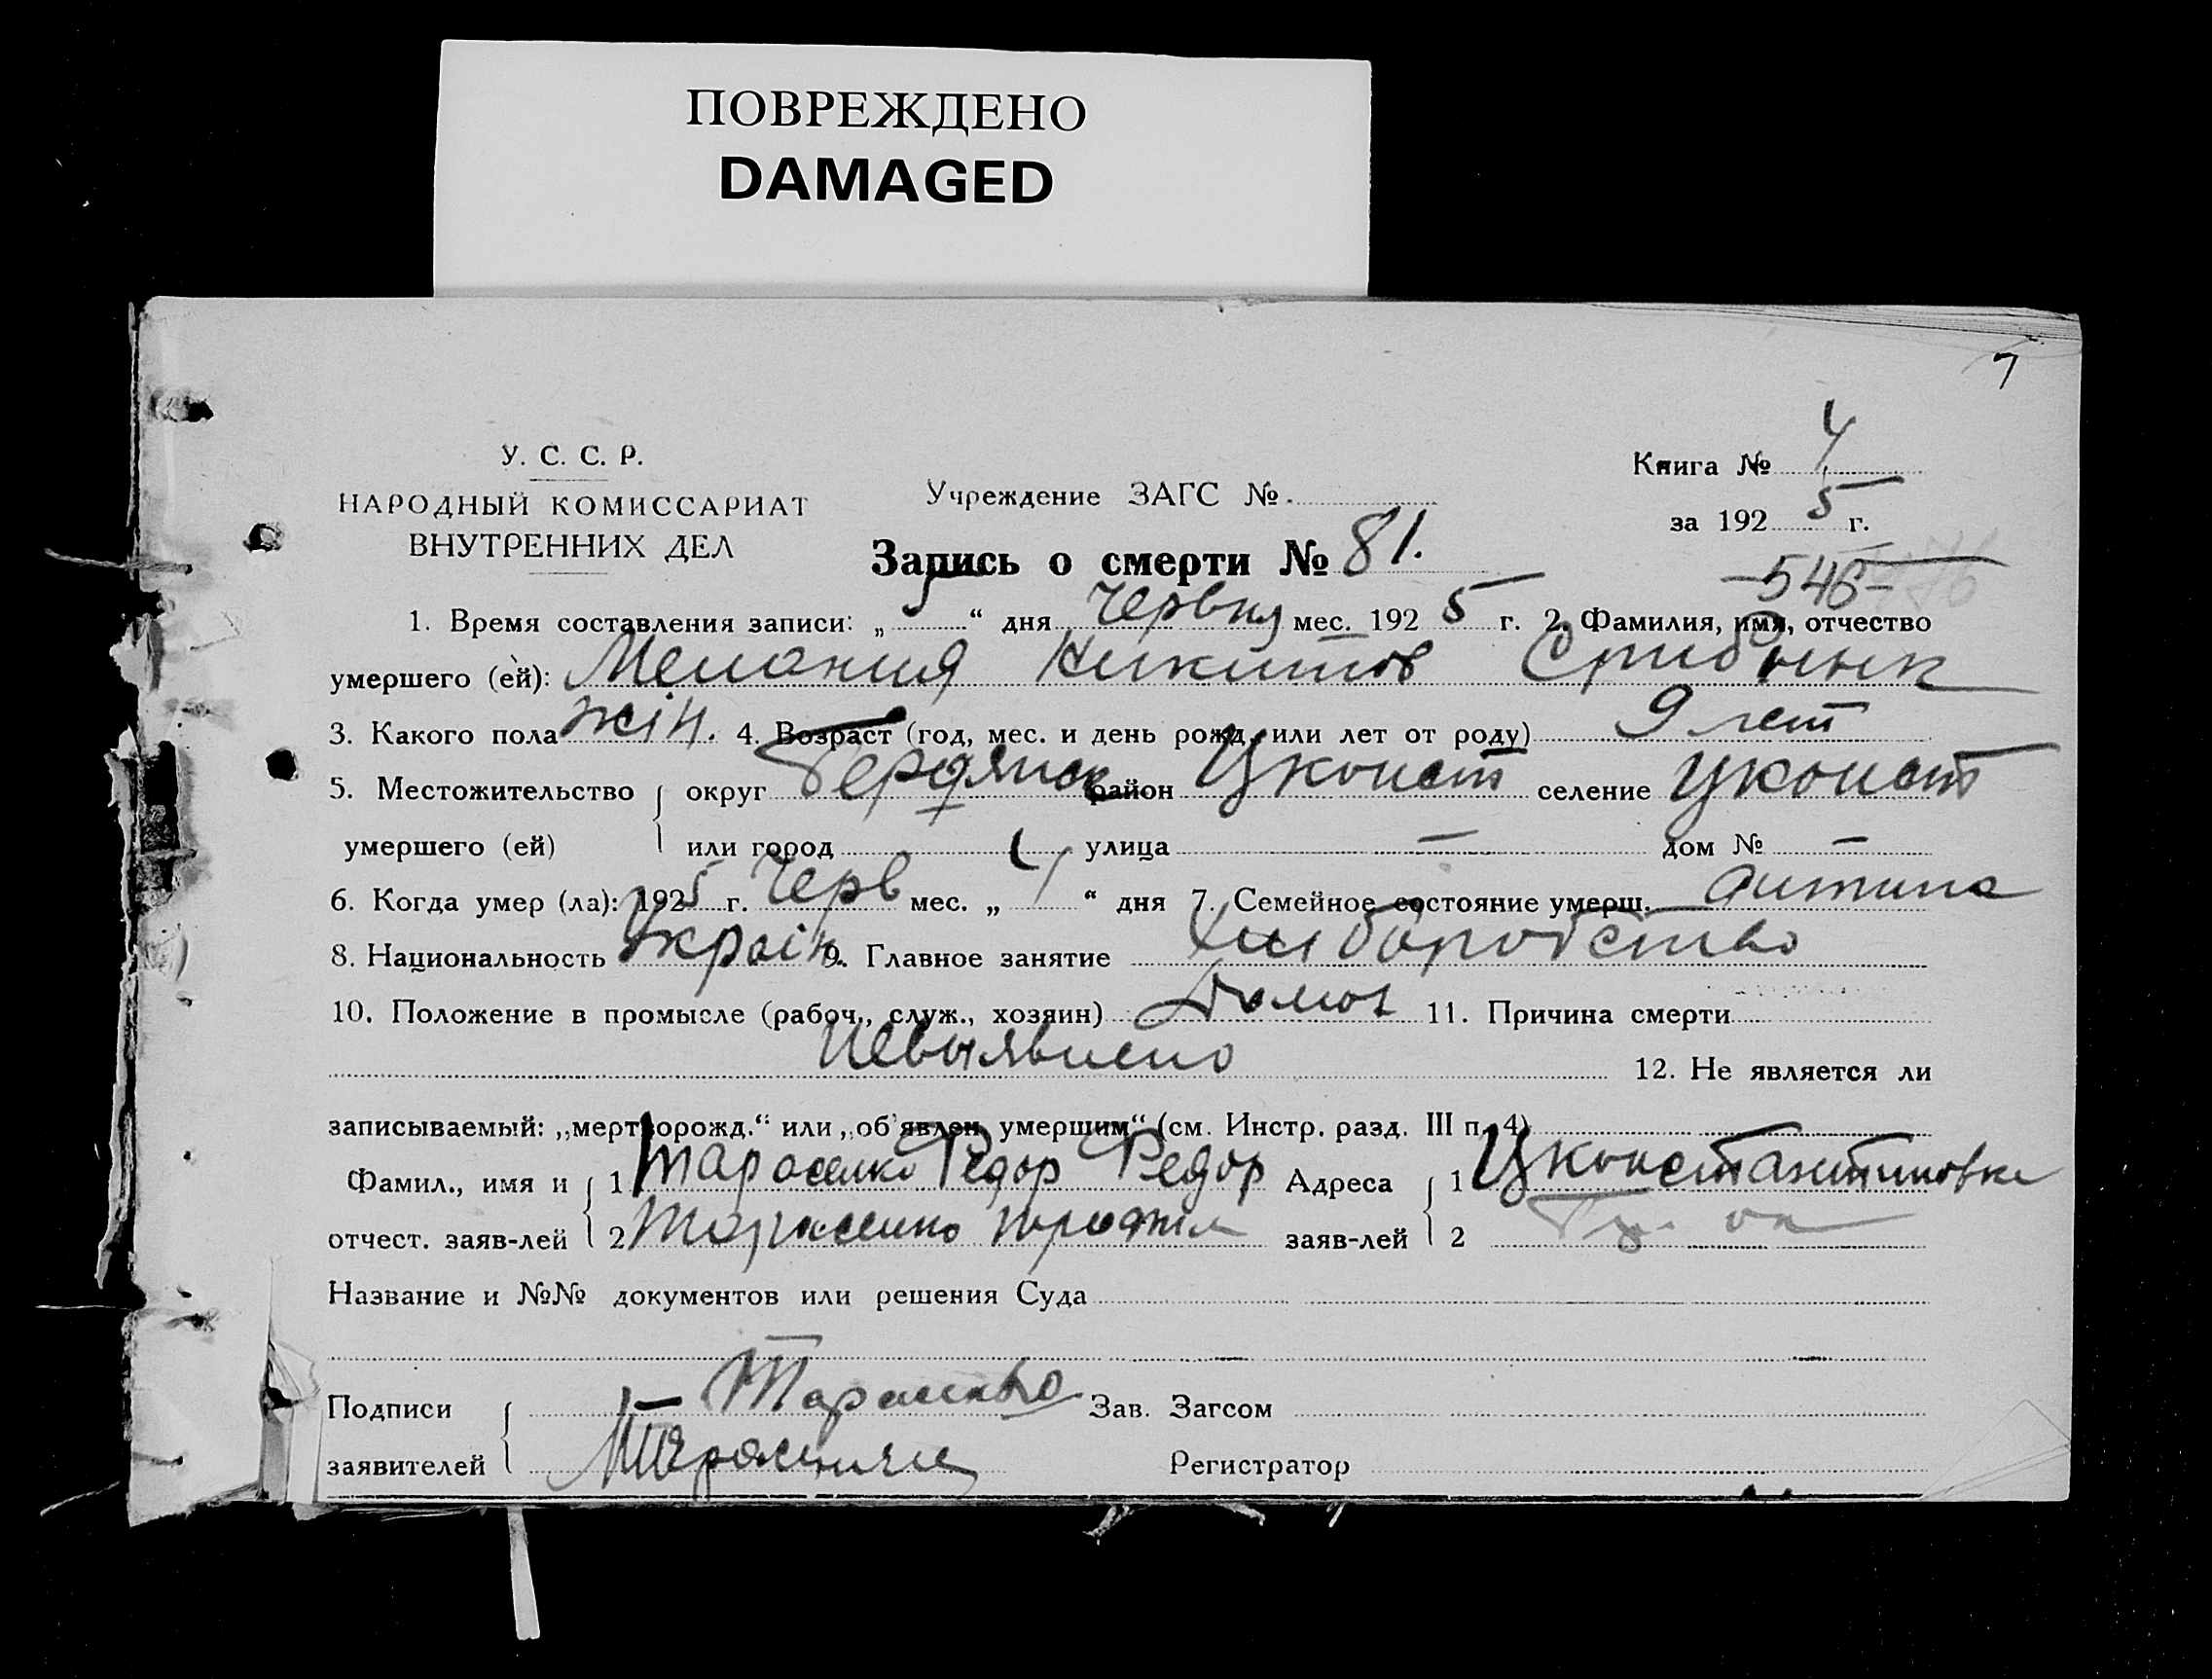 ПОВРЕЖДЕНО
DAMAGED
7
У. С. С. Р.
НАРОДНЫЙ КОМИССАРИАТ
ВНУТРЕННИХ ДЕЛ
Учреждение ЗАГС №
Книга № 4
за 1925 г.
Запись о смерти № 81.
-546-
1. Время составления записи: „5“ дня Червня мес. 1925 г. 2. Фамилия, имя, отчество
умершего (ей): Мелания Никитов
3. Какого пола жін. 4. Возраст (год, мес. и день рожд. или лет от роду) 9 лет
5. Местожительство округ Бердянск район Цконст селение Цконст
умершего (ей) или город улица — дом № —
6. Когда умер (ла): 1925 г. Черв мес. „ “ дня 7. Семейное состояние умерш. дитина
8. Национальность Украін. 9. Главное занятие Хлиборобство
10. Положение в промысле (рабоч., служ., хозяин) 11. Причина смерти
Невыявлено 12. Не является ли
записываемый: „мертворожд.“ или „об'явлен умершим“ (см. Инстр. разд. III п. 4)
Фамил., имя и 1 Тарасенко Федор Федор Адреса 1 Цконстантиновка
отчест. заяв-лей 2 Тарасенко заяв-лей 2
Название и №№ документов или решения Суда
Подписи 1— Тарасенко Зав. Загсом
заявителей Регистратор